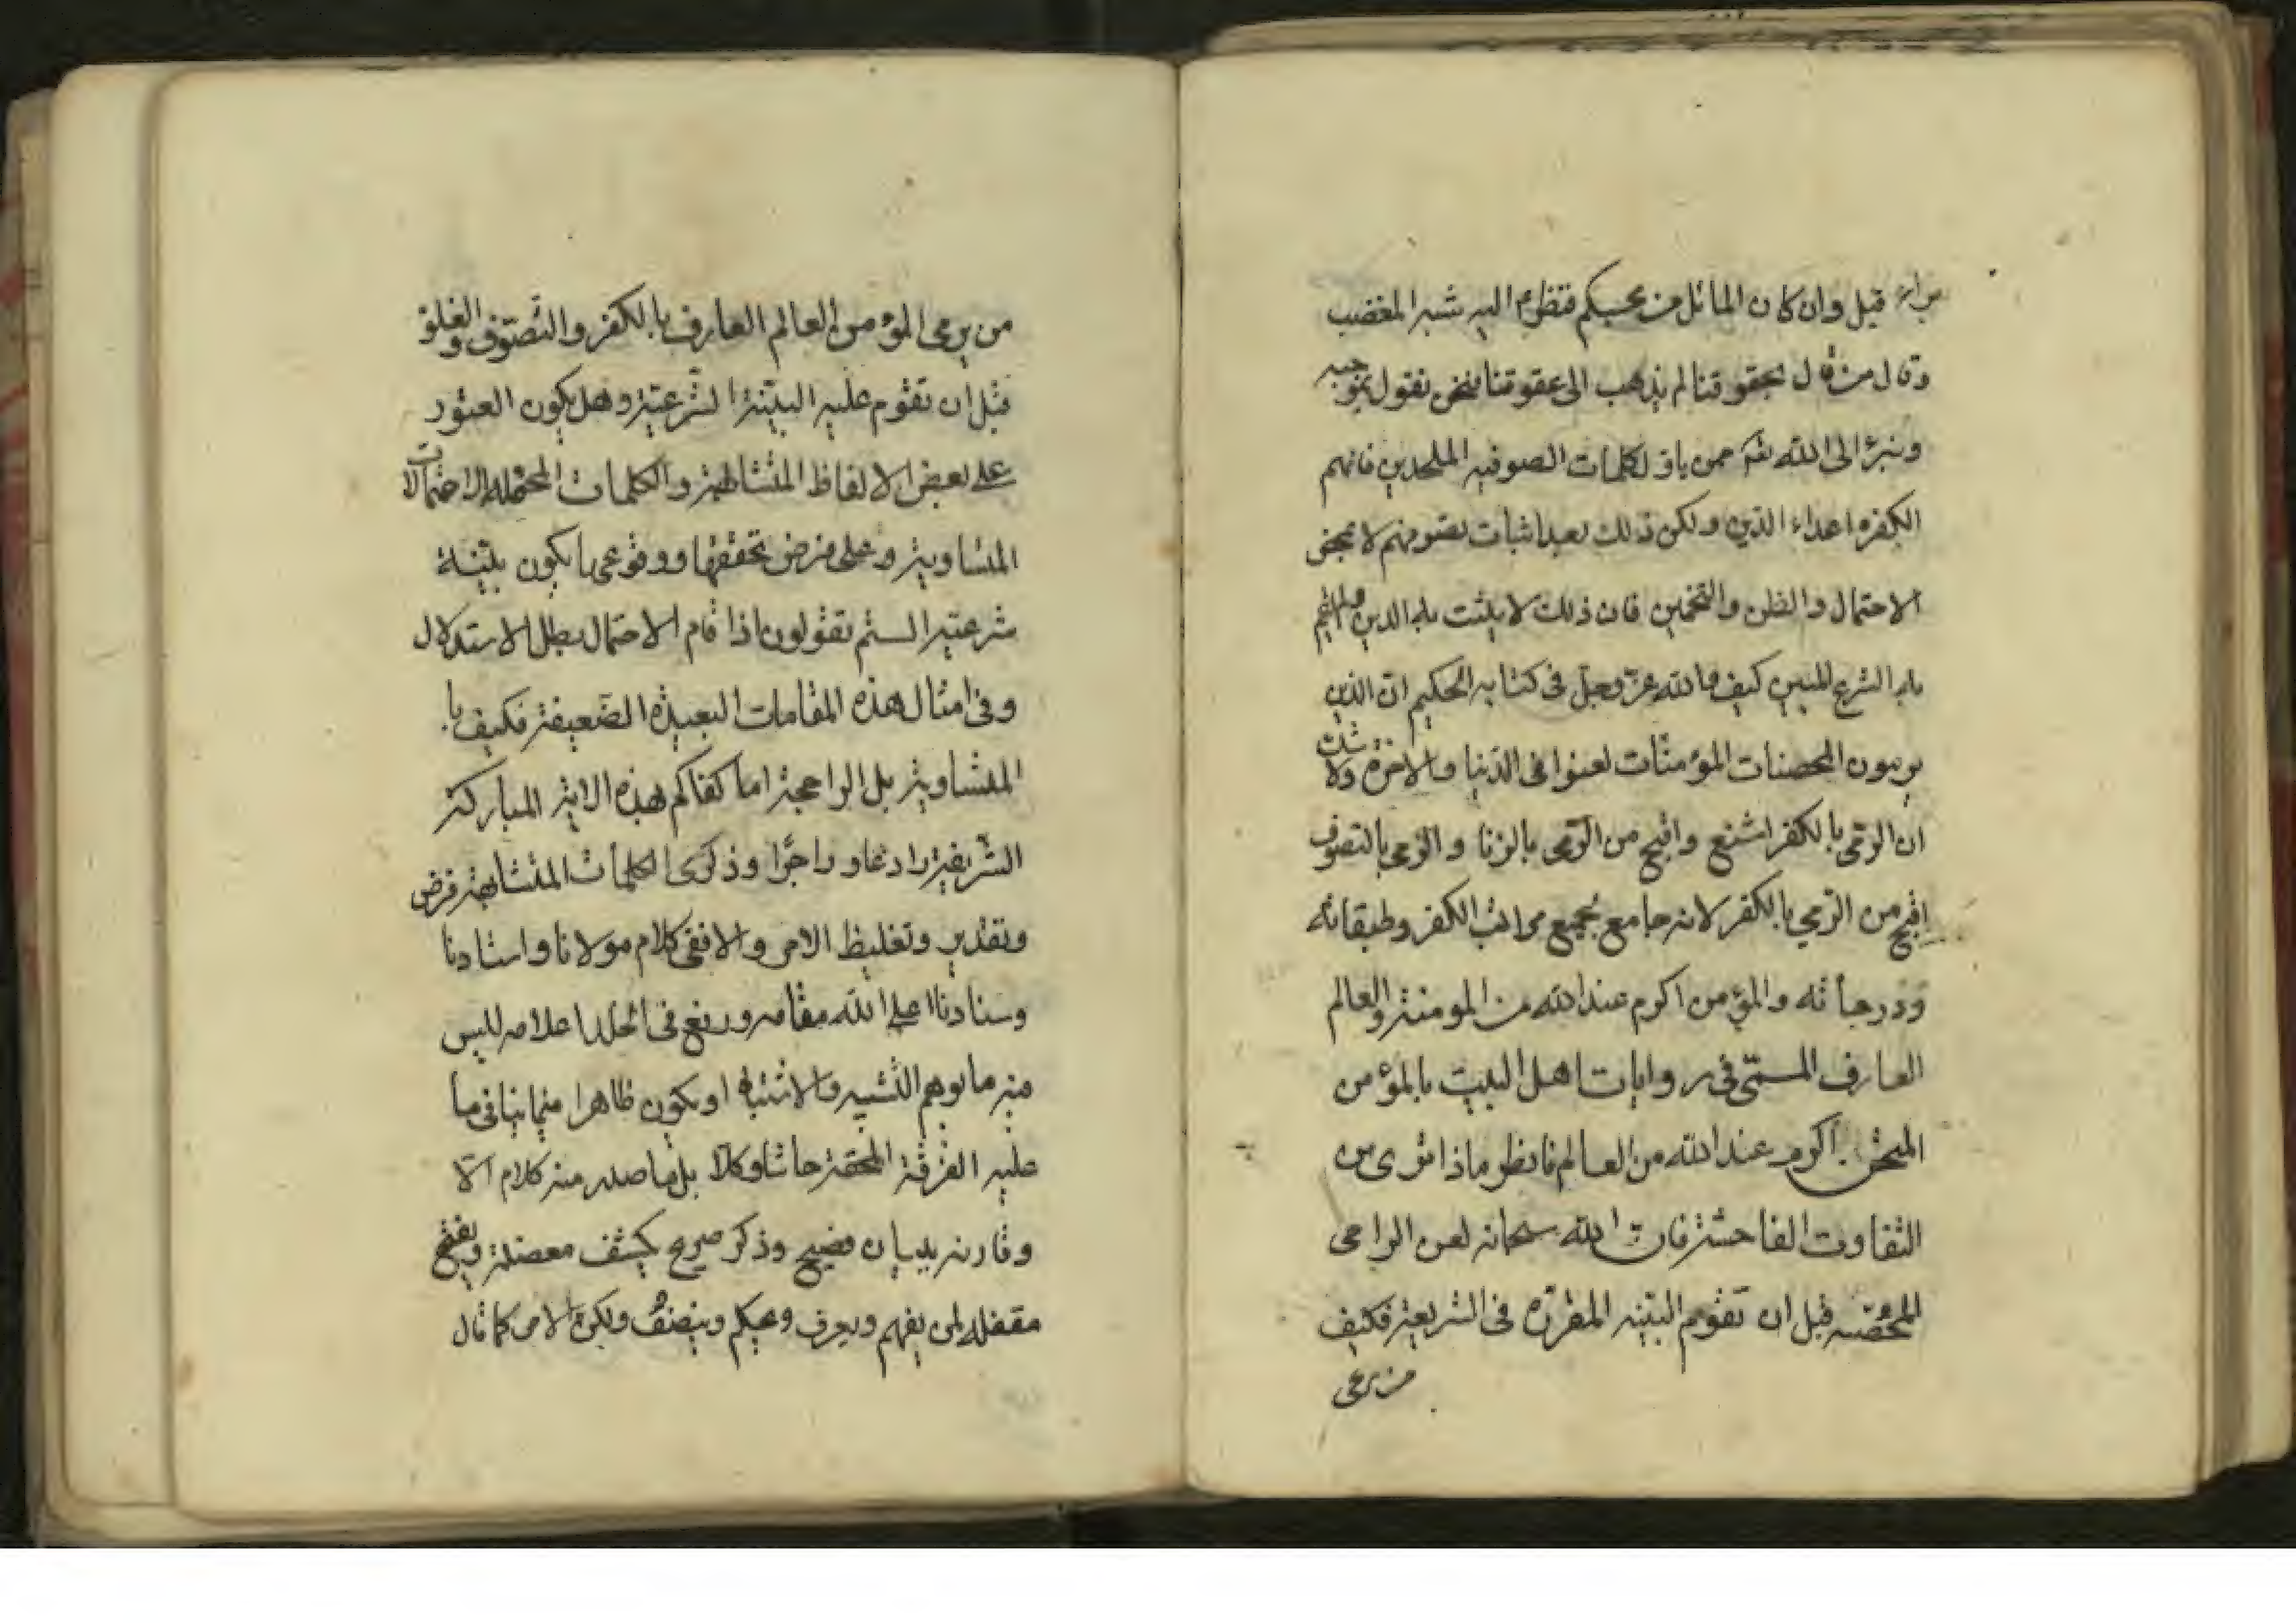 قبل وان كان المائل من محبيكم فتظروا اليه شبر المغضب
وقال من قال بحقوقنا لم يذهب الى عقوقنا فنحن نقول بموجبه
ونبرء الى الله تعالى ممن ياول كلمات الصوفيه الملحدين فانهم
الكفره اعداء الدين ولكن ذلك بعد اثبات تصوفهم لا بمحض
الاحتمال والظن والتخمين فان ذلك لا يثبت به الدين
به الشرع المبين كيف والله عز وجل فى كتابه الحكيم ان الذين
يرمون المحصنات المؤمنات لعنوا فى الدنيا والاخرة ولا شك
ان الرمى بالكفر اشنع واقبح من الرمى بالزنا والرمى بالتصوف
اقبح من الرمي بالكفر لانه جامع لجميع مراتب الكفر وطبقاته
ودرجاته والمؤمن اكرم عند الله من المومنة والعالم
العارف المسمّى فى روايات اهل البيت بالمؤمن
الممتحن اكرم عند الله من العالم فانظر ماذا ترى من
التفاوت الفاحشة فان الله سبحانه لعن الرامى
المحصنه قبل ان تقوم البينه المقررة فى الشريعة فكيف
من يرمى
من يرمى المؤمن العالم العارف بالكفر والتصوف والغلو
قبل ان تقوم عليه البينة الشرعية وهل يكون العثور
على بعض الالفاظ المتشابهة والكلمات المحتمله الاحتمالات
المتساوية وعلى فرض تحققها ووقوعها يكون بينة
شرعية الستم تقولون اذا قام الاحتمال بطل الاستدلال
وفى امثال هذه المقامات البعيدة الضعيفة فكيف با
المتساوية بل الراجحة اما كفاكم بهذه الاية المباركة
الشريفة رادعا وزاجرا وذكرى الكلمات المتشابهة فرض
وتقدير وتغليظ الامر والا ففى كلام مولانا واستادنا
وسنادنا اعلى الله مقامه ورفع فى الخلد اعلامه ليس
فيه ما يوهم التشبيه والاشتباه او يكون ظاهرا فيما ينافى ما
عليه الفرقة المحقة حاشا وكلا بل ما صدر منه كلام الا
وقارنه ببيان فصيح وذكر صريح يكشف معضله ويفتح
مقفله لمن يفهم ويعرف ويحكم وينصف ولكن الامر كما قال